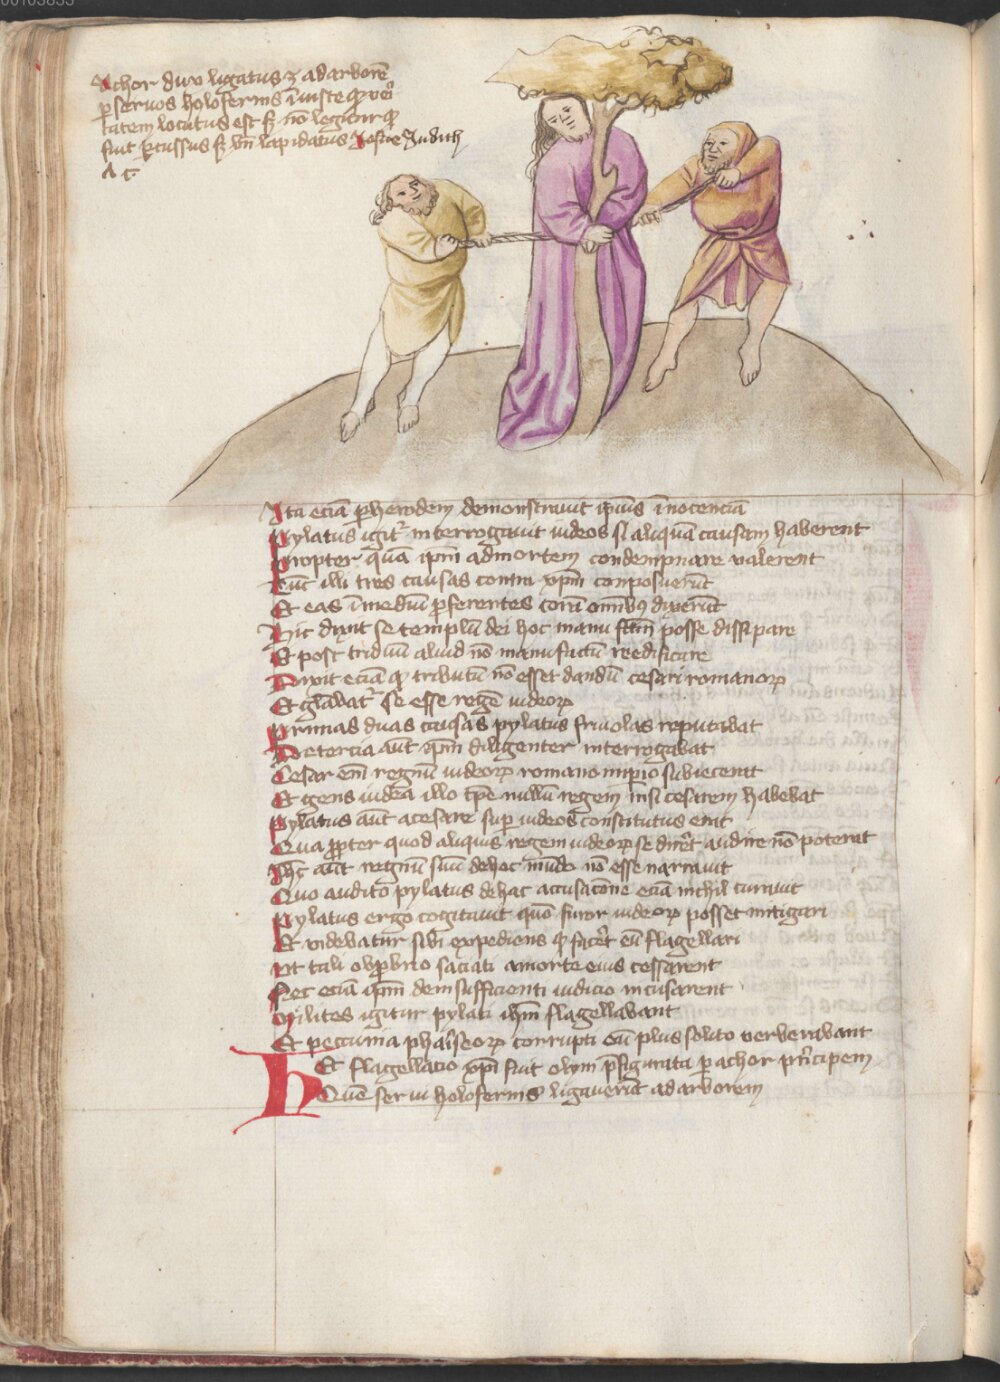 00103835
Achor dux ligatus est ad arborē
p servos holofernis iniuste q veri
tatem locutus est sz nō legitur q
fuit pcussus sz vn lapidatus Josue Judith
A c
Ita eciā p herodem demonstravit ipius inocenciā
Pylatus igit interrogavit iudeos si aliquā causam haberent
Propter quā ipm ad mortem condempnare valerent
Tūc illi tres causas contra xpm composuerūt
Et eas i mediū pferentes corā omibz dixerūt
Hic dixit se templū dei hoc manu fcm posse dissipare
Et post triduū aliud nō manufactū reedificare
Dixit eciā q tributū nō esset dandū cesari romanorꝝ
Et gl̄abat se esse regē iudeorꝝ
Primas duas causas pylatus frivolas reputabat
De tercia aūt ipm diligenter interrogabat
Cesar em̄ regnū iudeorꝝ romano imperio subiecerat
Et gens iudea illo tpe nullū regem nisi cesarem habebat
Pylatus aūt a cesare sup iudeos constitutus erat
Qua ppter quod aliquis regem iudeorꝝ se dicēt audire nō poterat
Ihc aūt regnū suū de hoc mūdo nō esse narravit
Quo audito pylatus de hac accusacōne eciā nichil curavit
Pylatus ergo cogitavit quō furor iudeorꝝ posset mitigari
Et videbatur sibi expediens q facēt eū flagellari
Ut tali obprobrio saciati a morte eius cessarent
Nec eciā ipm dein sufficienti iudicio incusarent
Milites igitur pylati ihm flagellabant
Et peccunia phaiseorꝝ corrupti eū plus solito verberabant
Hec flagellatio xpi fuit olym pfigurata p achor pncipem
Quē servi holofernis ligaverūt ad arborem